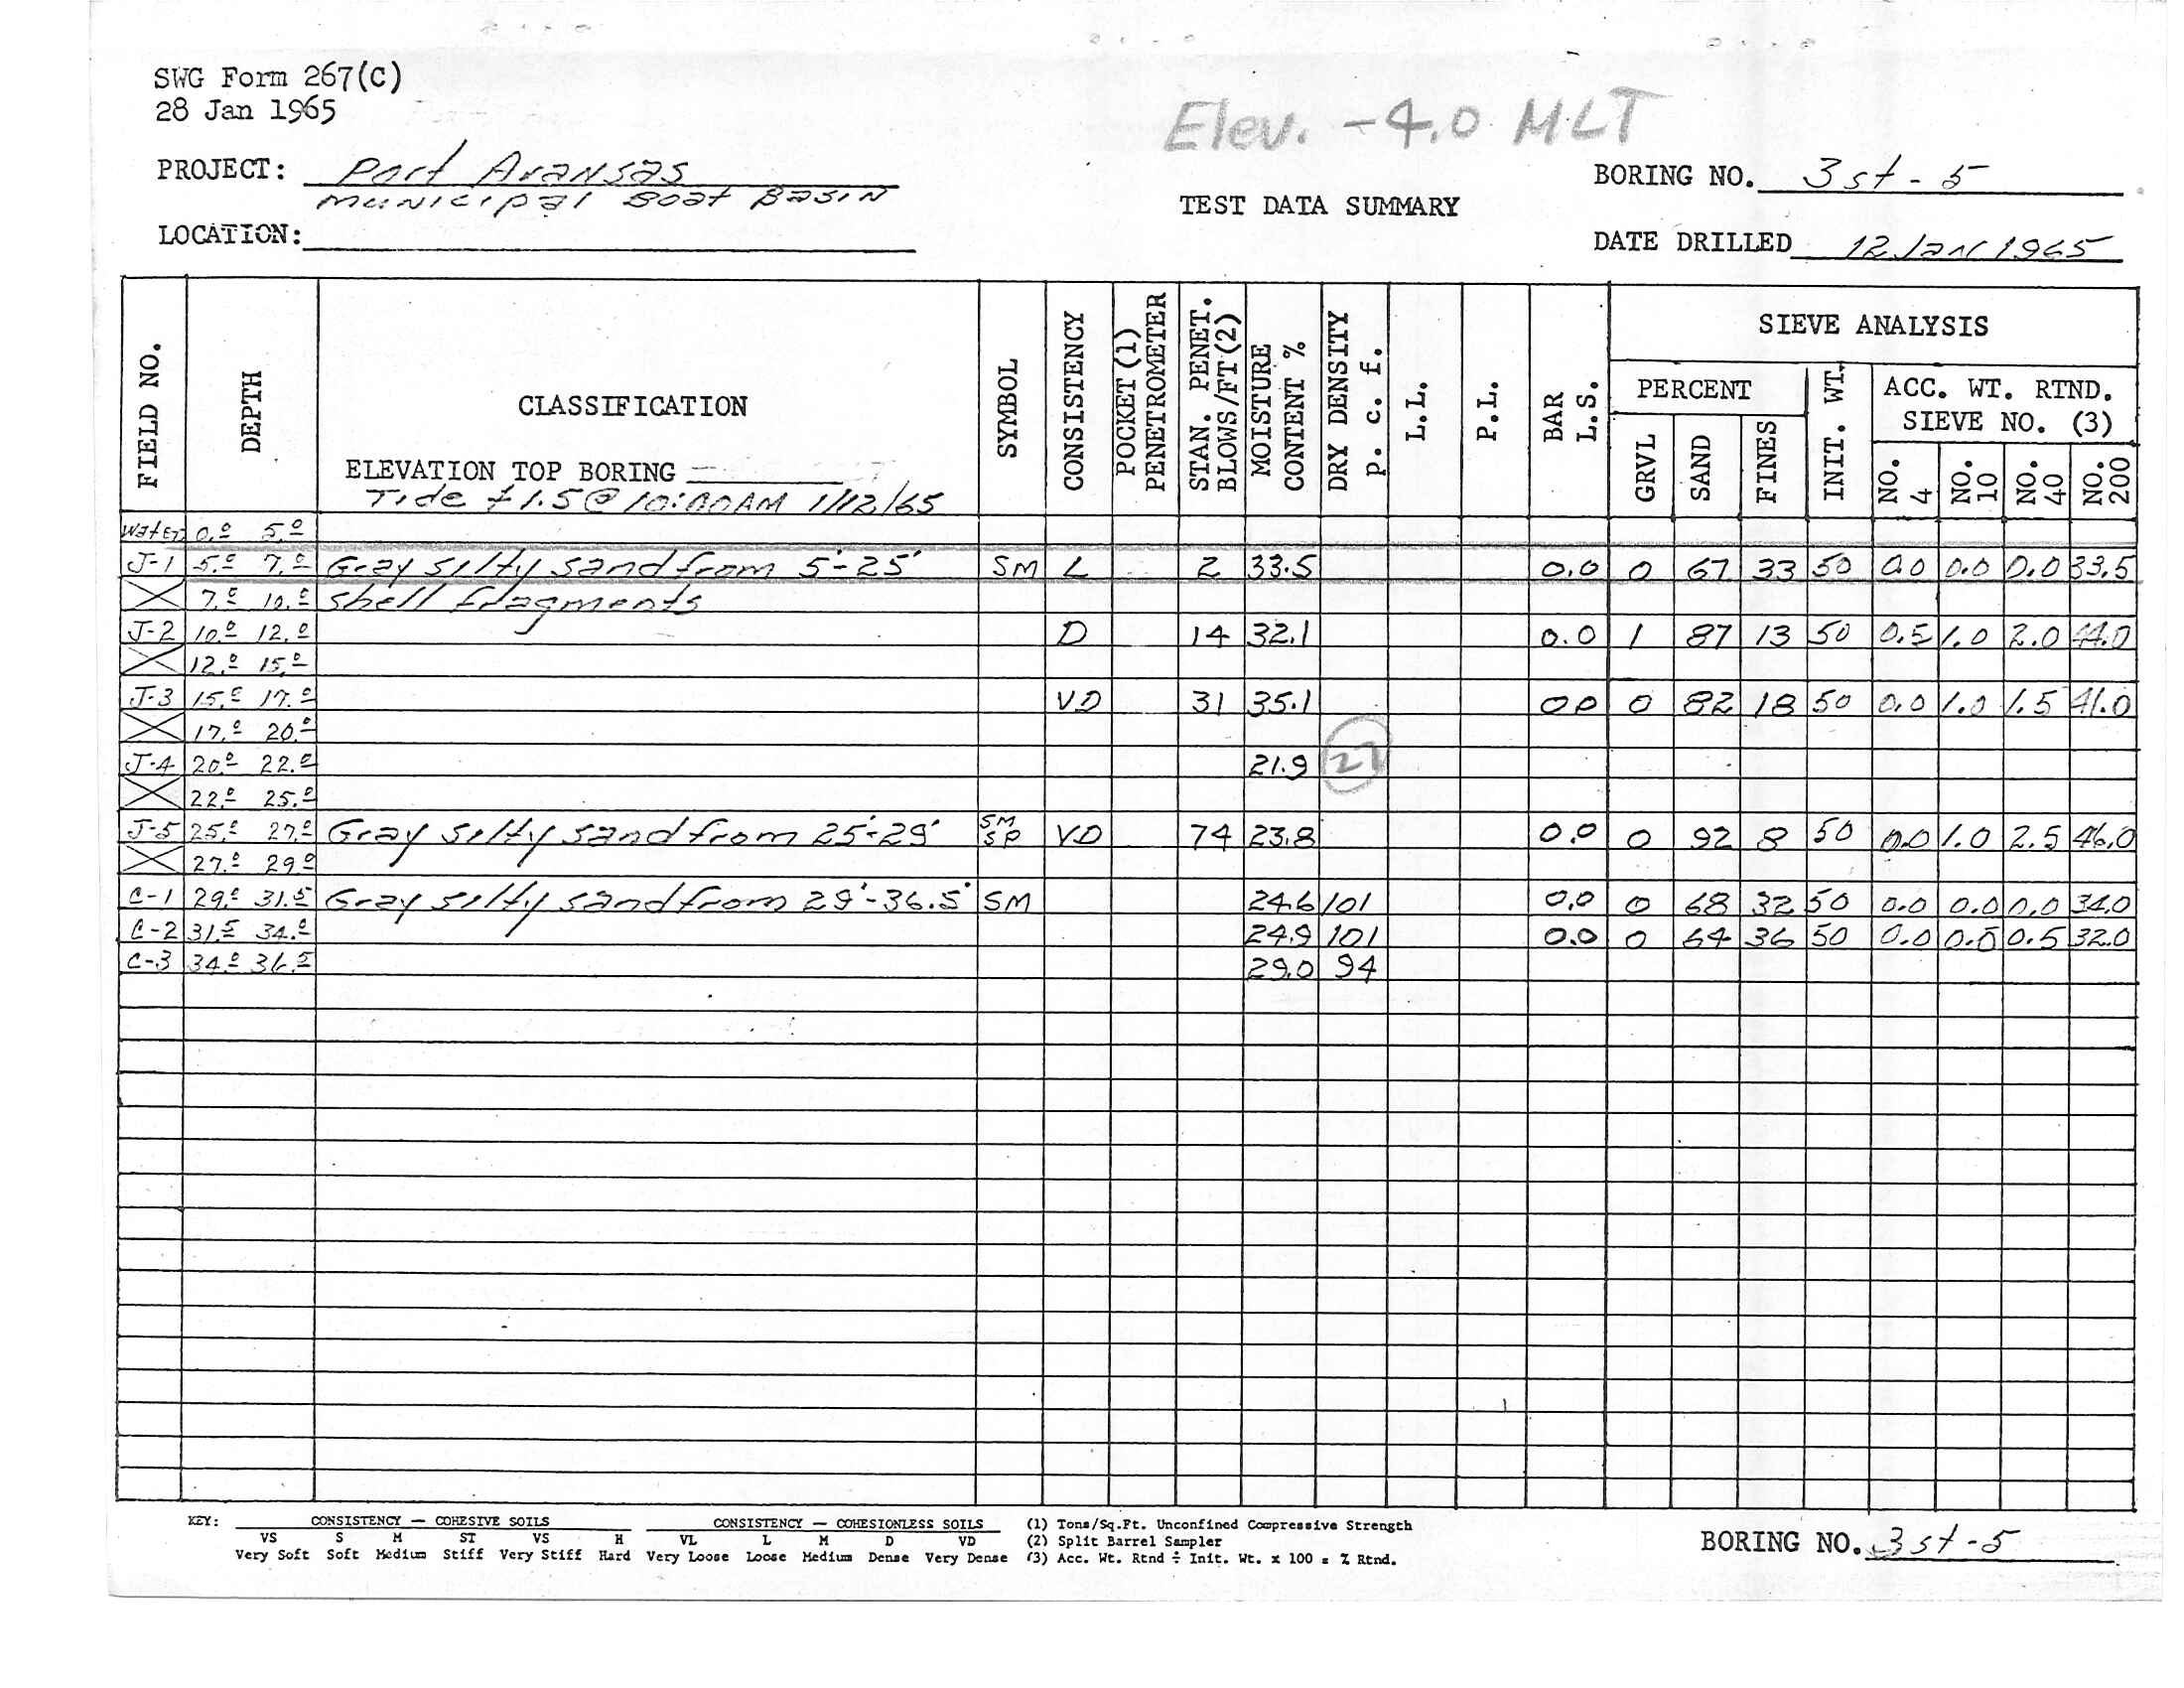 SWG Form 267(C)
28 Jan 1965
Elev. -4.0 MLT
PROJECT: Port Aransas
Municipal Boat Basin
BORING NO. 3st-5
TEST DATA SUMMARY
LOCATION:
DATE DRILLED 12 Jan 1965
FIELD NO.
DEPTH
CLASSIFICATION
ELEVATION TOP BORING
Tide +1.5 @ 10:00AM 1/12/65
SYMBOL
CONSISTENCY
POCKET (1)
PENETROMETER
STAN. PENET.
BLOWS/FT(2)
MOISTURE
CONTENT %
DRY DENSITY
p. c. f.
L.L.
P.L.
BAR
L.S.
SIEVE ANALYSIS
PERCENT
GRVL
SAND
FINES
INIT. WT.
ACC. WT. RTND.
SIEVE NO. (3)
NO. 4
NO. 10
NO. 40
NO. 200
Water 0.0 5.0
J-1 5.0 7.0 Gray silty sand from 5'-25' SM L 2 33.5 0.0 0 67 33 50 0.0 0.0 0.0 33.5
7.0 10.0 shell fragments
J-2 10.0 12.0 D 14 32.1 0.0 1 87 13 50 0.5 1.0 2.0 44.0
12.0 15.0
J-3 15.0 17.0 VD 31 35.1 00 0 82 18 50 0.0 1.0 1.5 41.0
17.0 20.0
J-4 20.0 22.0 21.9 27
22.0 25.0
J-5 25.0 27.0 Gray silty sand from 25'-29' SM SP VD 74 23.8 0.0 0 92 8 50 0.0 1.0 2.5 46.0
27.0 29.0
C-1 29.0 31.5 Gray silty sand from 29'-36.5' SM 24.6 101 0.0 0 68 32 50 0.0 0.0 0.0 34.0
C-2 31.5 34.0 24.9 101 0.0 0 64 36 50 0.0 0.0 0.5 32.0
C-3 34.0 36.5 29.0 94
KEY: CONSISTENCY — COHESIVE SOILS CONSISTENCY — COHESIONLESS SOILS (1) Tons/Sq.Ft. Unconfined Compressive Strength
VS S M ST VS H VL L M D VD (2) Split Barrel Sampler
Very Soft Soft Medium Stiff Very Stiff Hard Very Loose Loose Medium Dense Very Dense (3) Acc. Wt. Rtnd ÷ Init. Wt. x 100 = % Rtnd.
BORING NO. 3st-5